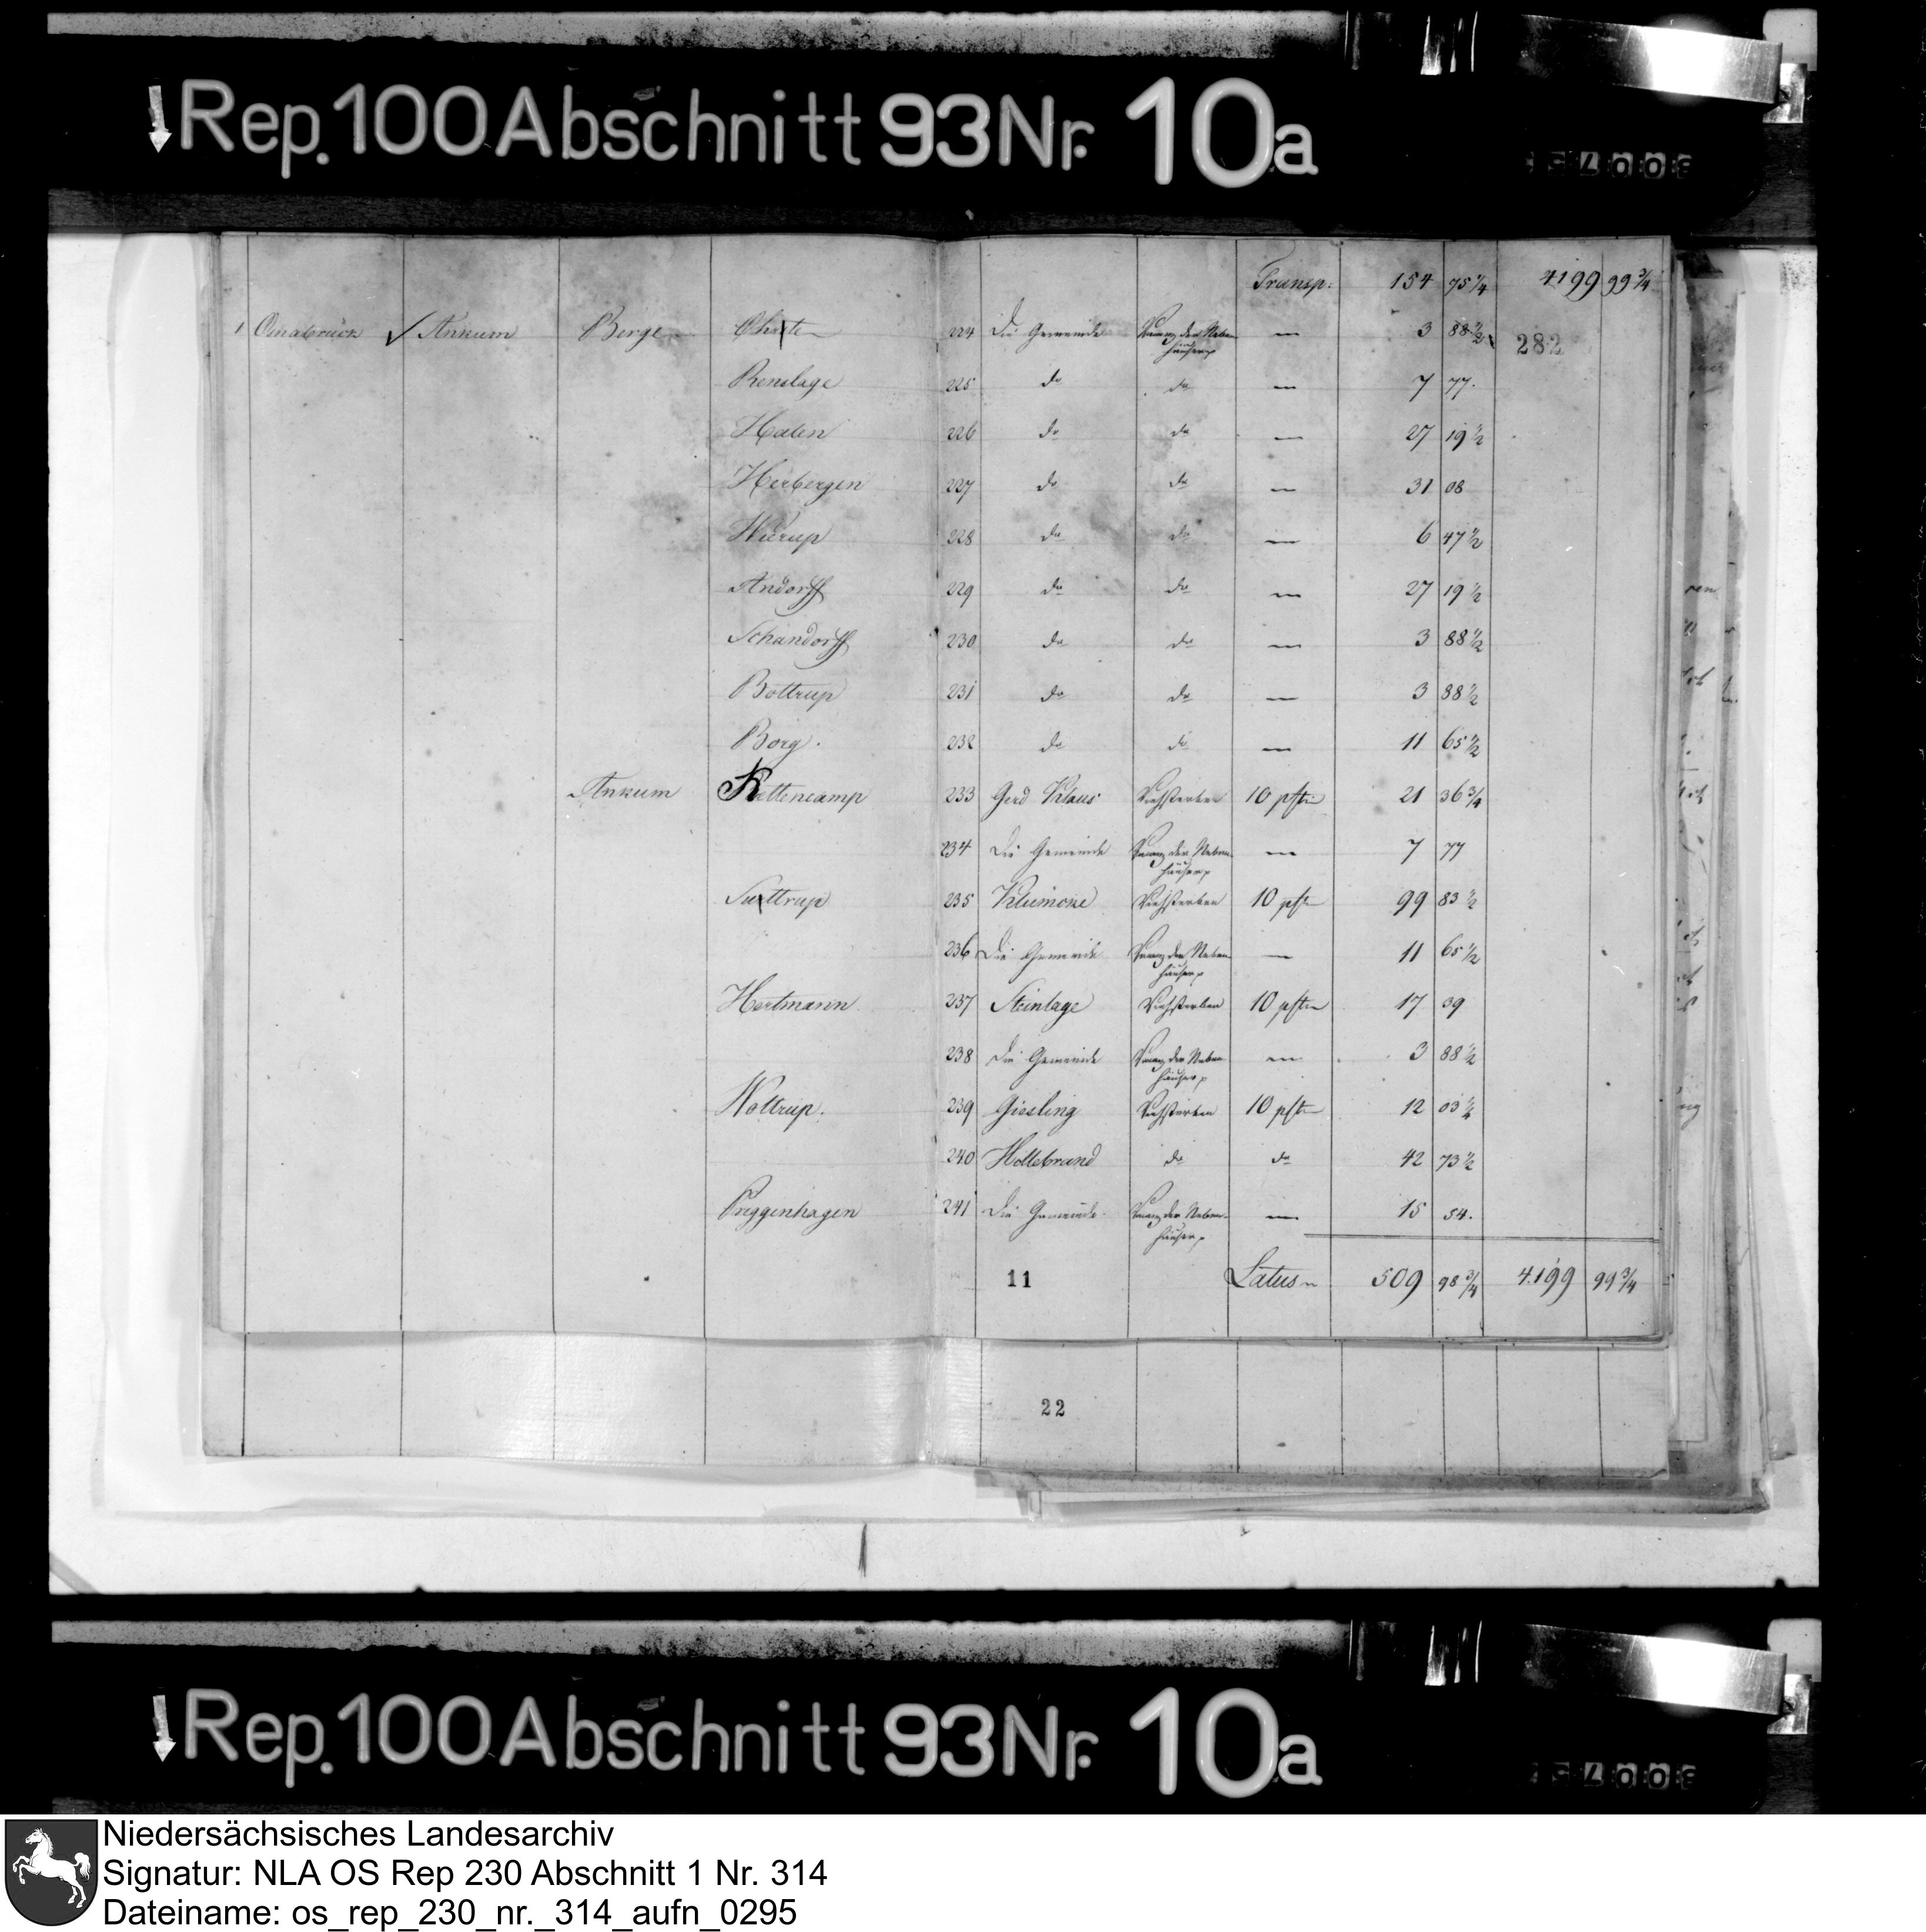 Rep. 100 Abschnitt 93 Nr. 10a
Transp: 154 75 1/4 4199 99 3/4
1 Osnabrück Ankum Berge Charten 224 Die Gemeinde der Neben — 3 88 1/2
häuser
282
Renslage 225 do do — 7 77.
Halen 226 do do — 27 19 1/2
Herbergen 227 do do — 31 08
Wurup 228 do do — 6 47 1/2
Andorff 229 do do — 27 19 1/2
Schandorff 230 do do — 3 88 1/2
Bottrup 231 do do — 3 88 1/2
Borg. 232 do do — 11 65 1/2
Ankum Kettencamp 233 Gerd Klaus Viehsterben 10 pften 21 36 3/4
234 Die Gemeinde der Neben — 7 77
häuser
Suttrup 235 Klumcke Viehsterben 10 pften 99 83 1/2
236 Die Gemeinde der Neben — 11 65 1/2
häuser
Hertmann 237 Steinlage Viehsterben 10 pften 17 39
238 Die Gemeinde der Neben — 3 88 1/2
häuser
Woltrup. 239 Giesling Viehsterben 10 pften 12 03
240 Holtebrand do do 42 73 1/2
Priggenhagen 241 Die Gemeinde der Neben — 15 54.
häuser
11 Latus 509 98 3/4 4199 99 3/4
22
Rep. 100 Abschnitt 93 Nr. 10a
Niedersächsisches Landesarchiv
Signatur: NLA OS Rep 230 Abschnitt 1 Nr. 314
Dateiname: os_rep_230_nr._314_aufn_0295